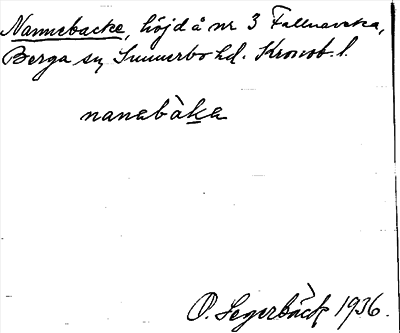 Nannebacke, höjd å nr 3 Fallnaveka,
Berga sn, Sunnerbo hd. Kronob. l.
nanabàka
O. Segerbäck 1936.